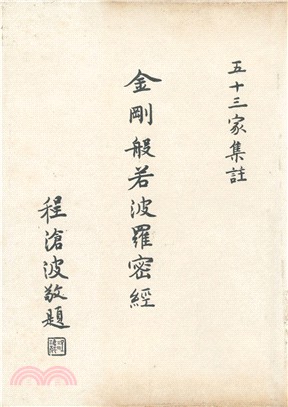 五十三家集註
金剛般若波羅密經
程滄波敬題